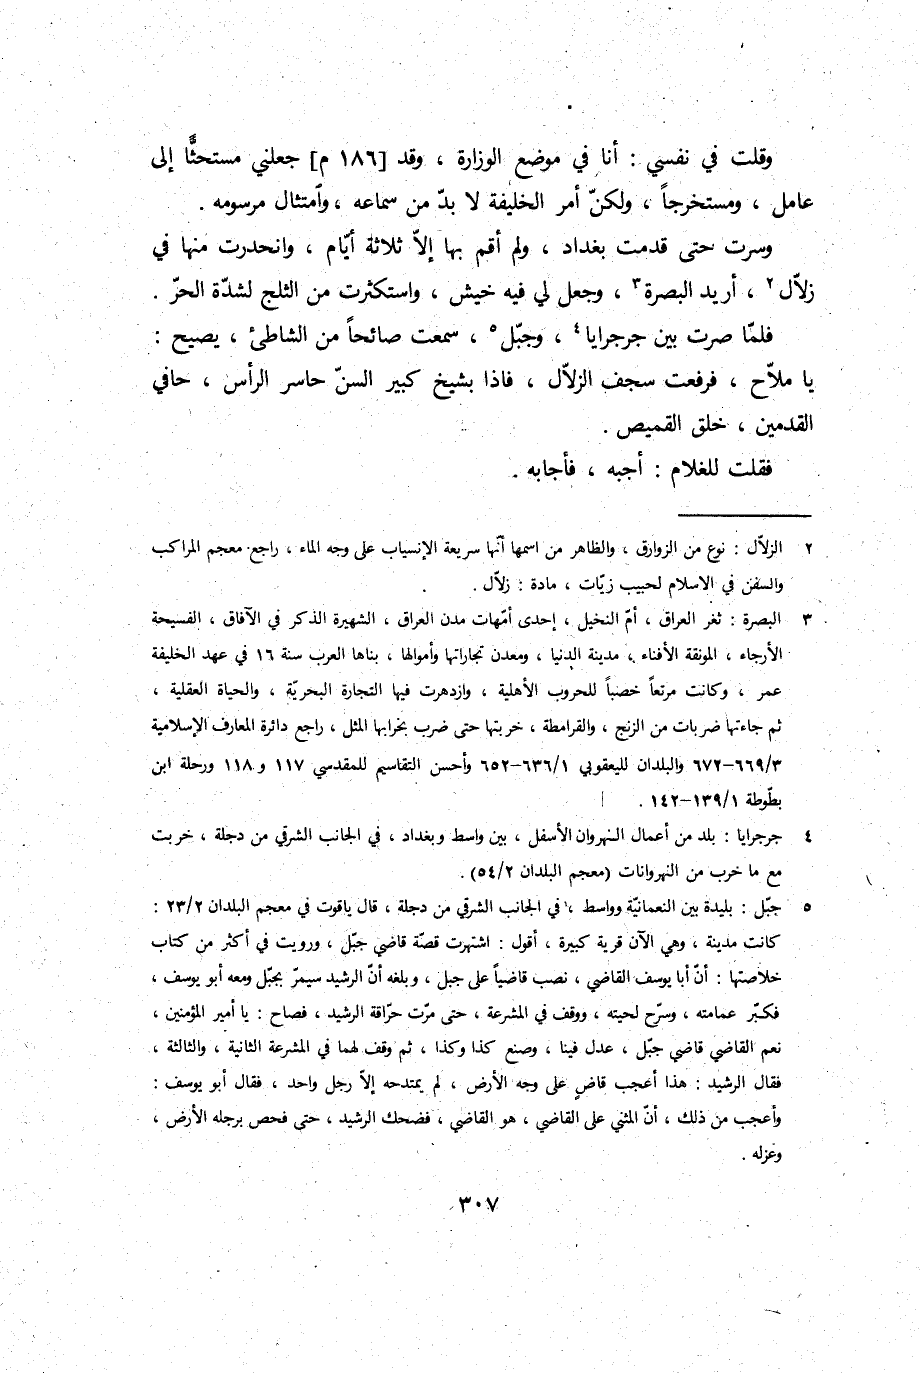 وقلت في نفسي : أنا في موضع الوزارة ، وقد [١٨٦ م] جعلني مستحثًّا إلى
عامل ، ومستخرجاً ، ولكنّ أمر الخليفة لا بدّ من سماعه ، وٱمتثال مرسومه .
وسرت حتى قدمت بغداد ، ولم أقم بها إلاّ ثلاثة أيّام ، وانحدرت منها في
زلاّل ٢ ، أريد البصرة ٣ ، وجعل لي فيه خيش ، واستكثرت من الثلج لشدّة الحرّ .
فلمّا صرت بين جرجرايا ٤ ، وجبّل ٥ ، سمعت صائحاً من الشاطئ ، يصيح :
يا ملاّح ، فرفعت سجف الزلاّل ، فاذا بشيخ كبير السنّ حاسر الرأس ، حافي
القدمين ، خلق القميص .
فقلت للغلام : أجبه ، فأجابه .
٢ الزلاّل : نوع من الزوارق ، والظاهر من اسمها أنّها سريعة الإنسياب على وجه الماء ، راجع معجم المراكب
والسفن في الاسلام لحبيب زيّات ، مادة : زلاّل .
٣ البصرة : ثغر العراق ، أمّ النخيل ، إحدى أمّهات مدن العراق ، الشهيرة الذكر في الآفاق ، الفسيحة
الأرجاء ، المونقة الأفناء ، مدينة الدنيا ، ومعدن تجاراتها وأموالها ، بناها العرب سنة ١٦ في عهد الخليفة
عمر ، وكانت مرتعاً خصباً للحروب الأهلية ، وازدهرت فيها التجارة البحريّة ، والحياة العقلية ،
ثم جاءتها ضربات من الزنج ، والقرامطة ، خربتها حتى ضرب بخرابها المثل ، راجع دائرة المعارف الإسلامية
٦٦٩/٣–٦٧٢ والبلدان لليعقوبي ٦٣٦/١–٦٥٢ وأحسن التقاسيم للمقدسي ١١٧ و ١١٨ ورحلة ابن
بطّوطة ١٣٩/١–١٤٢ .
٤ جرجرايا : بلد من أعمال النهروان الأسفل ، بين واسط وبغداد ، في الجانب الشرقي من دجلة ، خربت
مع ما خرب من النهروانات (معجم البلدان ٥٤/٢) .
٥ جبّل : بليدة بين النعمانيّة وواسط ، في الجانب الشرقي من دجلة ، قال ياقوت في معجم البلدان ٢٣/٢ :
كانت مدينة ، وهي الآن قرية كبيرة ، أقول : اشتهرت قصّة قاضي جبّل ، ورويت في أكثر من كتاب
خلاصتها : أنّ أبا يوسف القاضي ، نصب قاضياً على جبل ، وبلغه أنّ الرشيد سيمرّ بجبّل ومعه أبو يوسف ،
فكبّر عمامته ، وسرّح لحيته ، ووقف في المشرعة ، حتى مرّت حرّاقة الرشيد ، فصاح : يا أمير المؤمنين ،
نعم القاضي قاضي جبّل ، عدل فينا ، وصنع كذا وكذا ، ثم وقف لهما في المشرعة الثانية ، والثالثة ،
فقال الرشيد : هذا أعجب قاضٍ على وجه الأرض ، لم يمتدحه إلاّ رجل واحد ، فقال أبو يوسف :
وأعجب من ذلك ، أنّ المثني على القاضي ، هو القاضي ، فضحك الرشيد ، حتى فحص برجله الأرض ،
وعزله .
٣٠٧